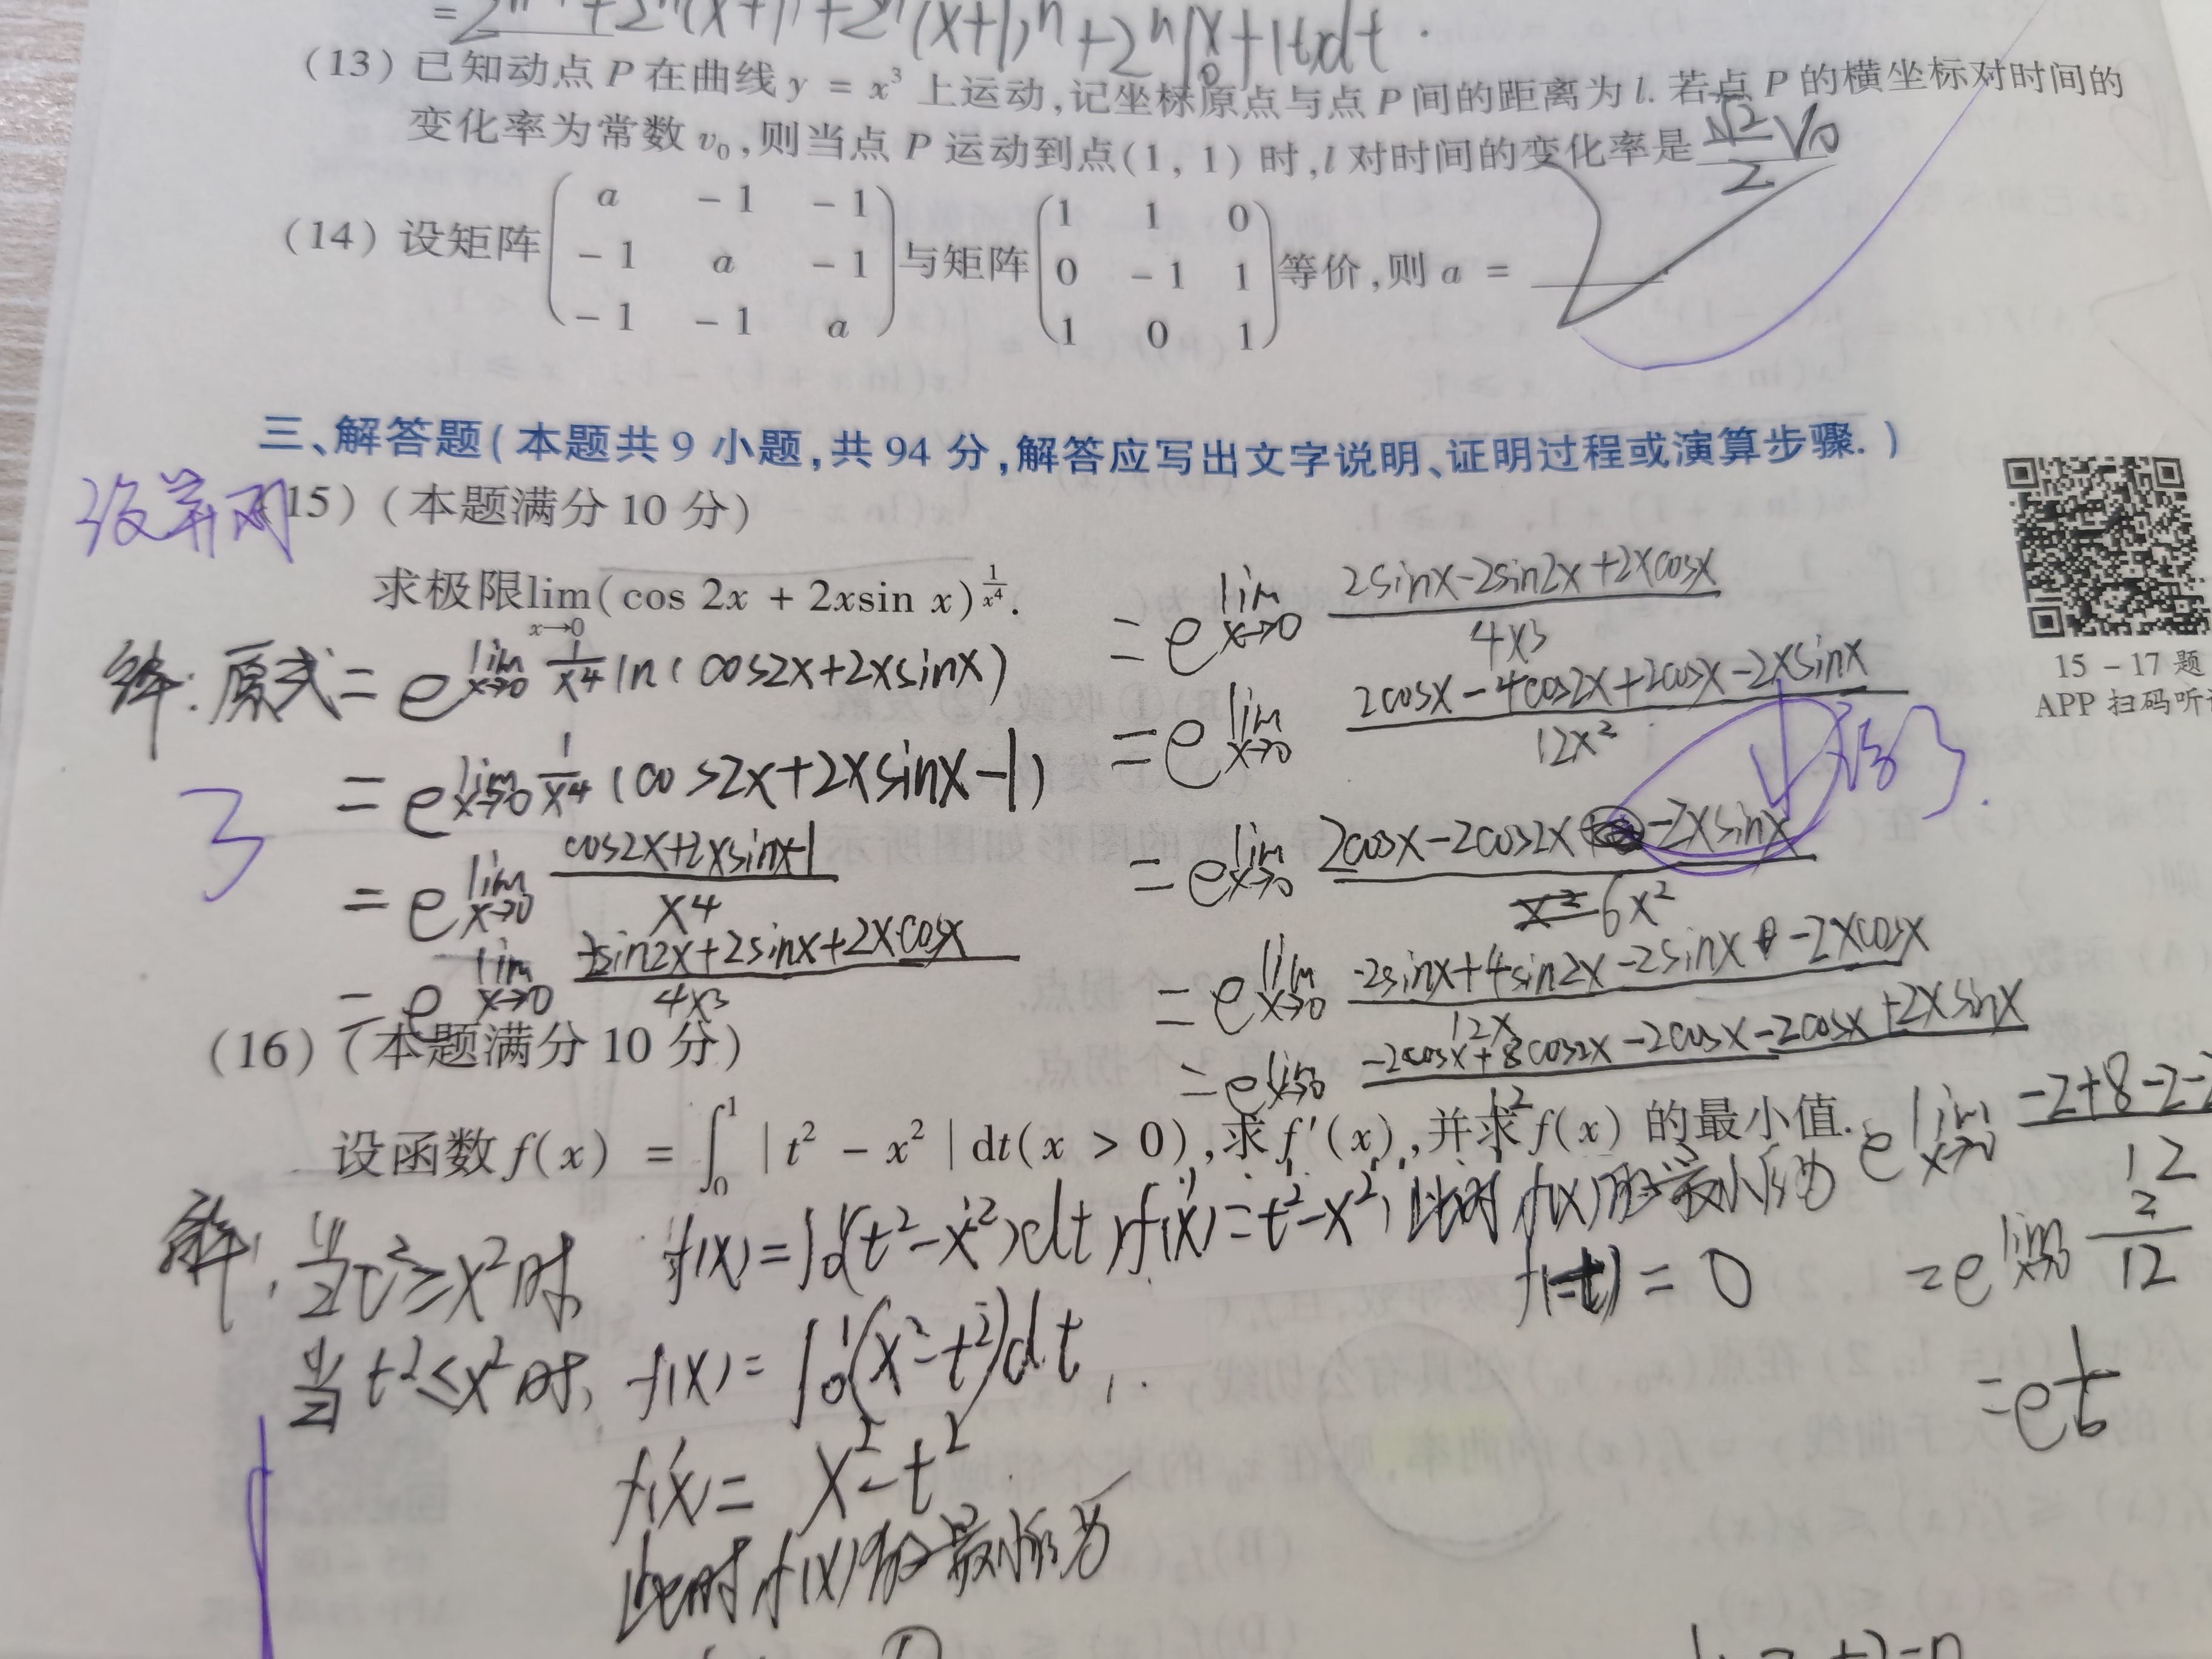 = 2ⁿ⁺¹ + 2ⁿ(x+1) + 2ⁿ(x+1)ⁿ + 2ⁿ∫₀ˣ
(13) 已知动点 P 在曲线 y = x³ 上运动,记坐标原点与点 P 间的距离为 l. 若点 P 的横坐标对时间的
变化率为常数 v₀,则当点 P 运动到点(1, 1) 时,l 对时间的变化率是 √2/2 V₀
(14) 设矩阵 ( a -1 -1 ; -1 a -1 ; -1 -1 a ) 与矩阵 ( 1 1 0 ; 0 -1 1 ; 1 0 1 ) 等价,则 a = ____
三、解答题(本题共 9 小题,共 94 分,解答应写出文字说明、证明过程或演算步骤.)
没算对
15) (本题满分 10 分)
求极限 lim_{x→0} (cos 2x + 2xsin x)^{1/x⁴}.
解:原式 = e^{lim_{x→0} 1/x⁴ ln(cos2x+2xsinx)}
= e^{lim_{x→0} 1/x⁴ (cos2x+2xsinx-1)}
3
= e^{lim_{x→0} (cos2x+2xsinx-1)/x⁴}
= e^{lim_{x→0} (-2sin2x+2sinx+2xcosx)/4x³}
= e^{lim_{x→0} (2sinx-2sin2x+2xcosx)/4x³}
= e^{lim_{x→0} (2cosx-4cos2x+2cosx-2xsinx)/12x²}
= e^{lim_{x→0} (2cosx-2cos2x-2xsinx)/6x²}
= e^{lim_{x→0} (-2sinx+4sin2x-2sinx-2xcosx)/12x}
= e^{lim_{x→0} (-2cosx+8cos2x-2cosx-2cosx+2xsinx)/12}
e^{lim_{x→0} (-2+8-2-2)/12}
= e^{lim_{x→0} 2/12}
= e^{1/6}
15 - 17 题
APP 扫码听
(16) (本题满分 10 分)
设函数 f(x) = ∫₀¹ | t² - x² | dt(x > 0),求 f′(x),并求 f(x) 的最小值.
解:当t²≥x²时 f(x)=∫₀¹(t²-x²)dt, f′(x)=t²-x², 此时f(x)的最小值为
f(-t) = 0
当t²≤x²时, f(x)=∫₀¹(x²-t²)dt,
f′(x)= x²-t²
此时f(x)的最小值为